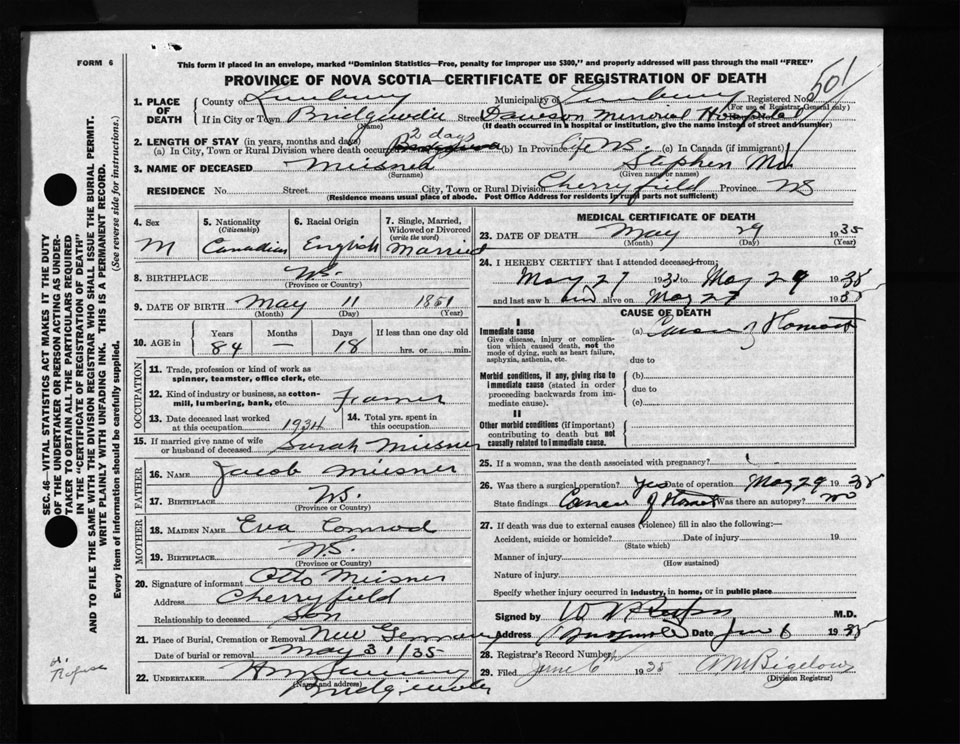 FORM 6
This form if placed in an envelope, marked "Dominion Statistics—Free, penalty for improper use $300," and properly addressed will pass through the mail "FREE"
PROVINCE OF NOVA SCOTIA—CERTIFICATE OF REGISTRATION OF DEATH
501
1. PLACE OF DEATH
County of Lunenburg Municipality of Lunenburg Registered No.
(For use of Registrar General only)
If in City or Town Bridgewater Street Dawson Memorial Hospital
(Name) (If death occurred in a hospital or institution, give the name instead of street and number)
2. LENGTH OF STAY (in years, months and days) 2 days
(a) In City, Town or Rural Division where death occurred (b) In Province Life NS. (c) In Canada (if immigrant)
3. NAME OF DECEASED Meisner Stephen
(Surname) (Given name or names)
RESIDENCE No. Street City, Town or Rural Division Cherryfield Province NS
(Residence means usual place of abode. Post Office Address for residents in rural parts not sufficient)
4. Sex
M
5. Nationality
(Citizenship)
Canadian
6. Racial Origin
English
7. Single, Married, Widowed or Divorced
(write the word)
Married
8. BIRTHPLACE NS.
(Province or Country)
9. DATE OF BIRTH May 11 1851
(Month) (Day) (Year)
10. AGE in
Years Months Days If less than one day old
84 — 18 hrs. or min.
OCCUPATION
11. Trade, profession or kind of work as spinner, teamster, office clerk, etc.
12. Kind of industry or business, as cotton-mill, lumbering, bank, etc. Farmer
13. Date deceased last worked at this occupation 1934
14. Total yrs. spent in this occupation
15. If married give name of wife or husband of deceased Sarah Meisner
FATHER
16. NAME Jacob Meisner
17. BIRTHPLACE NS.
(Province or Country)
MOTHER
18. MAIDEN NAME Eva Conrod
19. BIRTHPLACE N.S.
(Province or Country)
20. Signature of informant Otto Meisner
Address Cherryfield
Relationship to deceased Son
21. Place of Burial, Cremation or Removal New Germany
Date of burial or removal May 31/35
22. UNDERTAKER
(Name and address)
Bridgewater
MEDICAL CERTIFICATE OF DEATH
23. DATE OF DEATH May 29 1935
(Month) (Day) (Year)
24. I HEREBY CERTIFY that I attended deceased from:
May 27 1935 to May 29 1935
and last saw him alive on May 29 1935
CAUSE OF DEATH
I
Immediate cause
Give disease, injury or complication which caused death, not the mode of dying, such as heart failure, asphyxia, asthenia, etc.
(a) Cancer of Stomach
due to
Morbid conditions, if any, giving rise to immediate cause (stated in order proceeding backwards from immediate cause).
(b)
due to
(c)
II
Other morbid conditions (if important) contributing to death but not causally related to immediate cause.
25. If a woman, was the death associated with pregnancy?
26. Was there a surgical operation? yes Date of operation May 29 1935
State findings Cancer of Stomach Was there an autopsy? no
27. If death was due to external causes (violence) fill in also the following:—
Accident, suicide or homicide? Date of injury 19
(State which)
Manner of injury
(How sustained)
Nature of injury
Specify whether injury occurred in industry, in home, or in public place
Signed by M.D.
Address Date Jun 6 1935
28. Registrar's Record Number
29. Filed June 6th 1935 AM Bigelow
(Division Registrar)
SEC. 46—VITAL STATISTICS ACT MAKES IT THE DUTY OF THE UNDERTAKER OR PERSON ACTING AS UNDERTAKER TO OBTAIN ALL THE PARTICULARS REQUIRED IN THE "CERTIFICATE OF REGISTRATION OF DEATH" AND TO FILE THE SAME WITH THE DIVISION REGISTRAR WHO SHALL ISSUE THE BURIAL PERMIT.
WRITE PLAINLY WITH UNFADING INK. THIS IS A PERMANENT RECORD.
Every item of information should be carefully supplied. (See reverse side for instructions.)